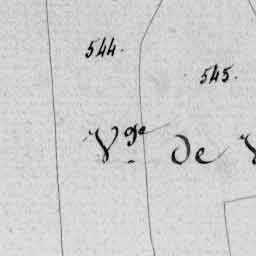 544.
545.
Vge de